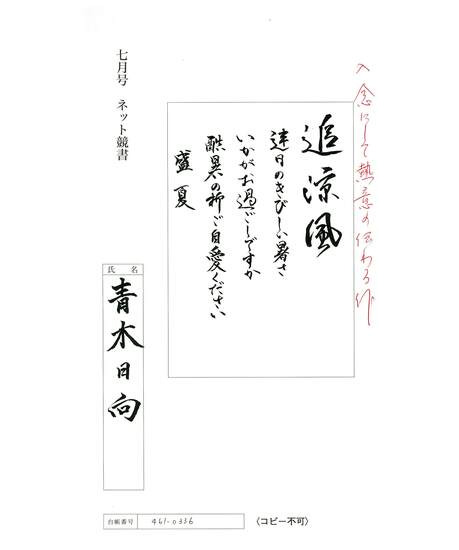 入念にして熱意の伝わる作
追涼風
連日のきびしい暑さ
いかがお過ごしですか
酷暑の折ご自愛ください
盛夏
七月号 ネット競書
氏名
青木日向
台帳番号 461-0336
〈コピー不可〉